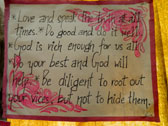 *Love and speak the truth at all
times. *Do good and do it well.
*God is rich enough for us all
*Do your best and God will
help. * Be diligent to root out
your vices, but not to hide them.